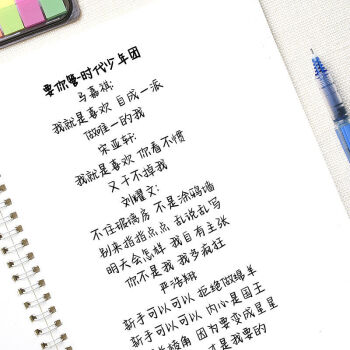 要你管-时代少年团
马嘉祺:
我就是喜欢 自成一派
做唯一的我
宋亚轩:
我就是喜欢 你看不惯
又干不掉我
刘耀文:
不住玻璃房 不是涂鸦墙
别来指指点点 乱说乱写
明天会怎样 我自有主张
你不是我 我多疯狂
严浩翔
新手可以可以 拒绝做绵羊
新手可以可以 内心是国王
棱角 因为要变成星星
是我要的